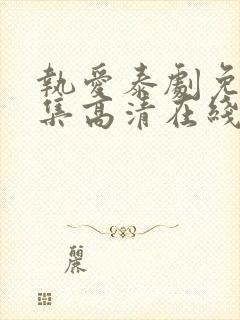 執愛泰劇免
集高清在綫
麗